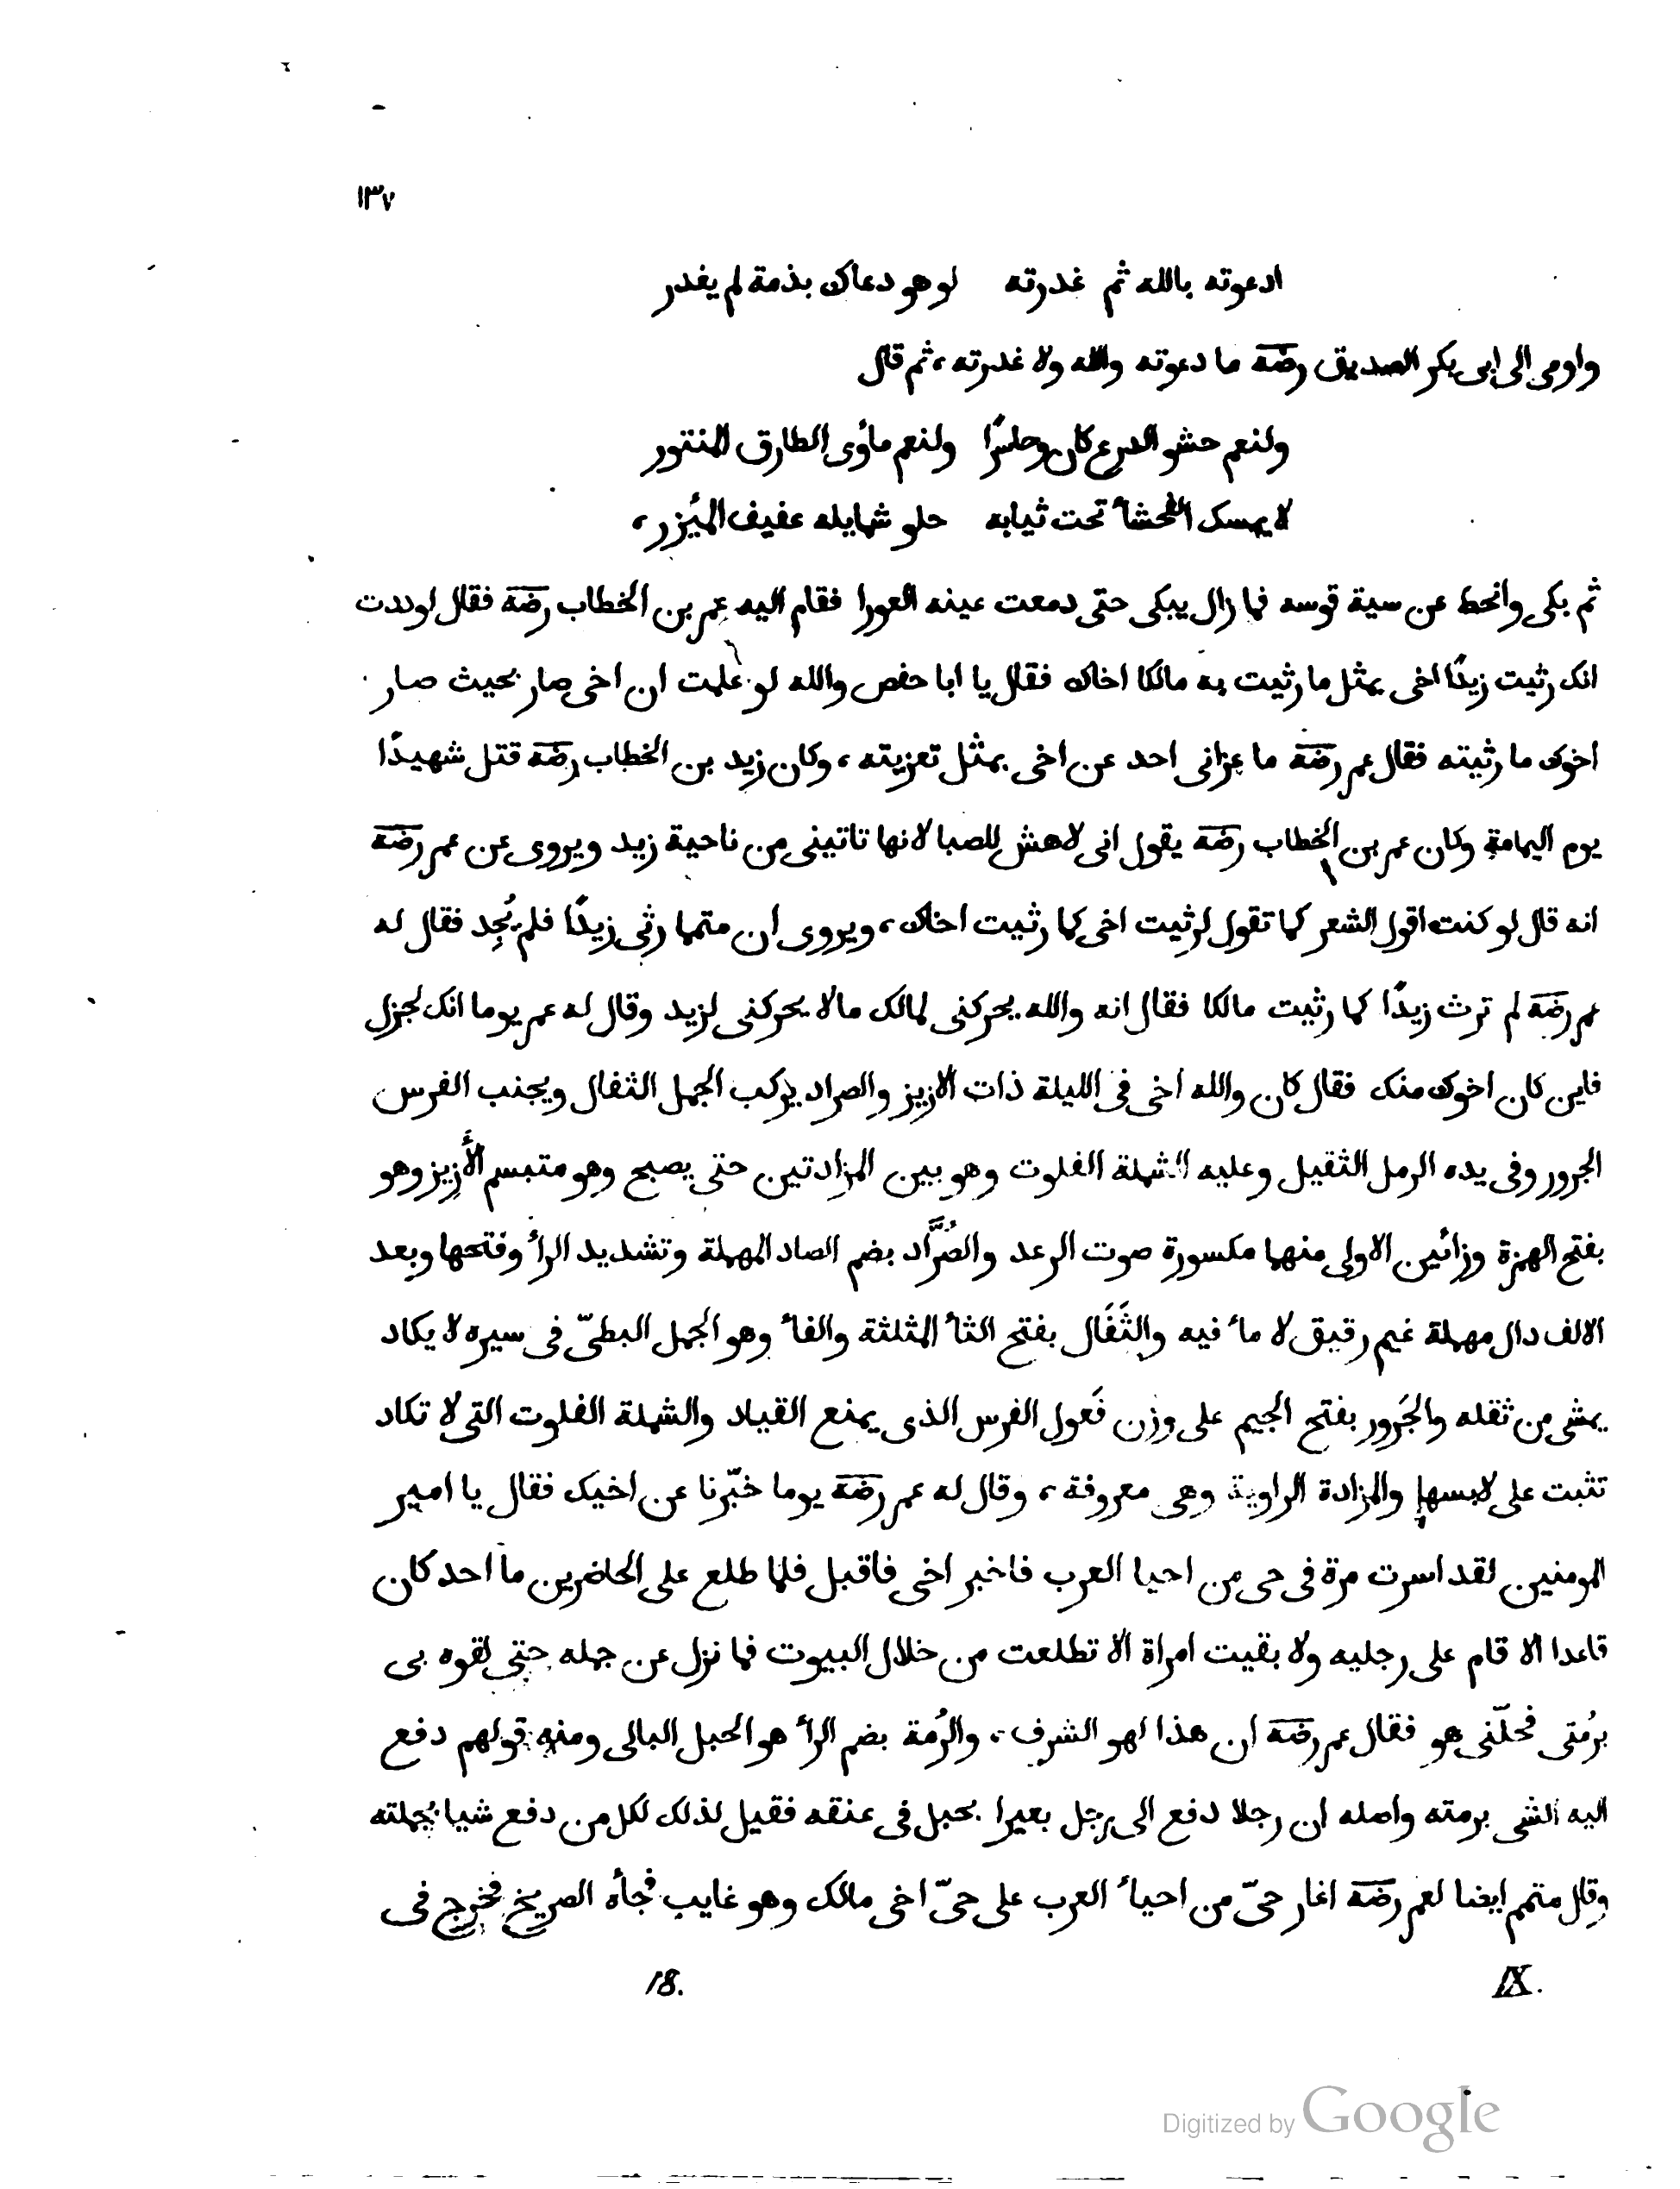 ١٣٧
ادعوته بالله ثم غدرته لو هو دعاك بذمة لم يغدر
واومى الى ابى بكر الصديق رضّه ما دعوته والله ولا غدرته، ثم قال
ولنعم حشو الدرع كان وحاسرًا ولنعم مأوى الطارق المتنور
لا يمسك الفحشأ تحت ثيابه حلو شمايله عفيف المئزر،
ثم بكى وانحط عن سية قوسه فما زال يبكى حتى دمعت عينه العورا فقام اليه عمر بن الخطاب رضّه فقال لوددت
انك رثيت زيدًا اخى بمثل ما رثيت به مالكا اخاك فقال يا ابا حفص والله لو علمت ان اخى صار بحيث صار
اخوك ما رثيته فقال عمر رضّه ما عزانى احد عن اخى بمثل تعزيته، وكان زيد بن الخطاب رضّه قتل شهيدًا
يوم اليمامة وكان عمر بن الخطاب رضّه يقول انى لاهش للصبا لانها تاتينى من ناحية زيد ويروى عن عمر رضّه
انه قال لو كنت اقول الشعر كما تقول لرثيت اخى كما رثيت اخاك، ويروى ان متمما رثى زيدًا فلم يُجِد فقال له
عمر رضّه لم ترث زيدًا كما رثيت مالكا فقال انه والله يحركنى لمالك ما لا يحركنى لزيد وقال له عمر يوما انك لجزل
فاين كان اخوك منك فقال كان والله اخى فى الليلة ذات الازيز والصراد يركب الجمل الثفال ويجنب الفرس
الجرور وفى يده الرمل الثقيل وعليه الشملة الفلوت وهو بين المزادتين حتى يصبح وهو متبسم الأَزيز وهو
بفتح الهمزة وزائين الاولى منهما مكسورة صوت الرعد والصُرَّاد بضم الصاد المهملة وتشديد الرأ وفتحها وبعد
الالف دال مهملة غيم رقيق لا مأ فيه والثَفَال بفتح الثأ المثلثة والفأ وهو الجمل البطىّ فى سيره لا يكاد
يمشى من ثقله والجَرور بفتح الجيم على وزن فَعول الفرس الذى يمنع القياد والشملة الفلوت التى لا تكاد
تثبت على لابسها والمزادة الراوية وهى معروفة، وقال له عمر رضّه يوما خبّرنا عن اخيك فقال يا امير
المومنين لقد اسرت مرة فى حى من احيا العرب فاخبر اخى فاقبل فلما طلع على الحاضرين ما احد كان
قاعدا الا قام على رجليه ولا بقيت امراة الا تطلعت من خلال البيوت فما نزل عن جمله حتى لقوه بى
برُمتى فحلّنى هو فقال عمر رضّه ان هذا لهو الشرف، والرُمة بضم الرأ هو الحبل البالى ومنه قولهم دفع
اليه الشى برمته واصله ان رجلا دفع الى رجل بعيرا بحبل فى عنقه فقيل لذلك لكل من دفع شيا بجُملته
وقال متمم ايضا لعمر رضّه اغار حىّ من احيأ العرب على حىّ اخى مالك وهو غايب فجأه الصريخ فخرج فى
IX. 18.
Digitized by Google